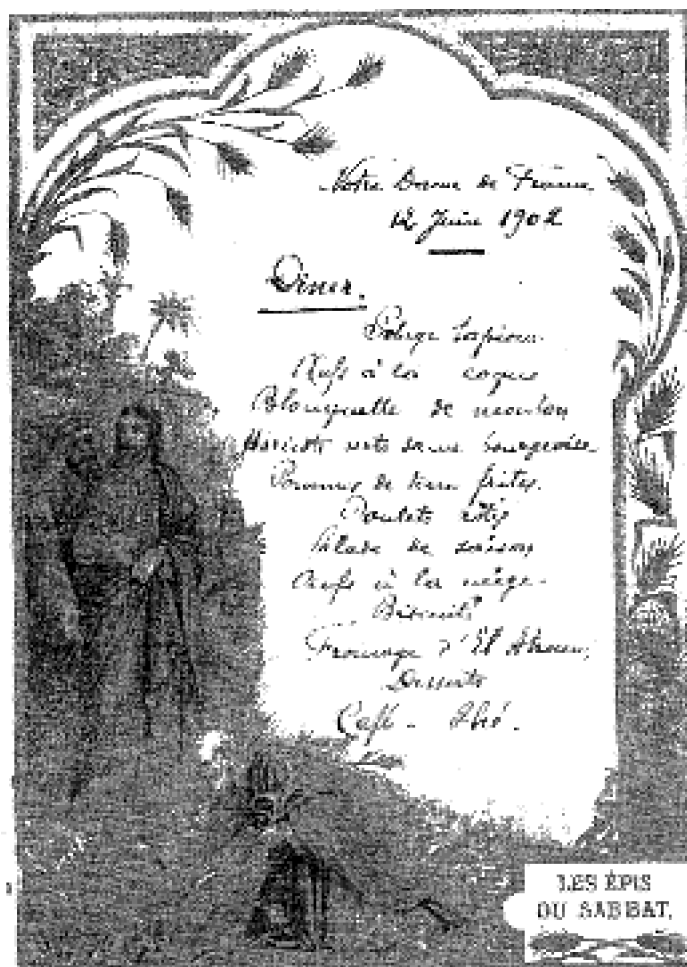 Notre Dame de France
12 Juin 1902
Diner.
Potage tapioca
Œufs à la coque
Blanquette de mouton
Haricots verts bourgeoise
Pommes de terre frites.
Poulets rôtis
Salade de saison
Œufs à la neige
Biscuits
Fromage d'El
Desserts
Café - Thé.
LES ÉPIS
DU SABBAT.